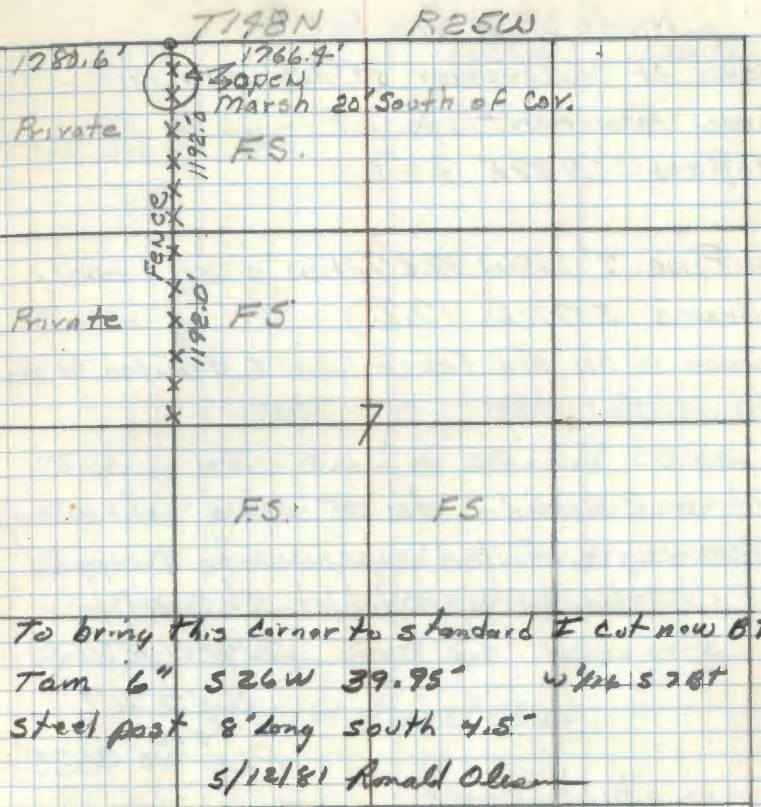 T148N R25W
1280.6' 1266.4'
OPEN
Marsh 20' South of Cor.
Private F.S.
1192.0'
Fence
Private FS
1192.0'
7
F.S. FS
To bring this corner to standard I cut new BT
Tam 6" S26W 39.95' W 1/16 S7 BT
steel post 8' long south 4.5'
5/12/81 Ronald